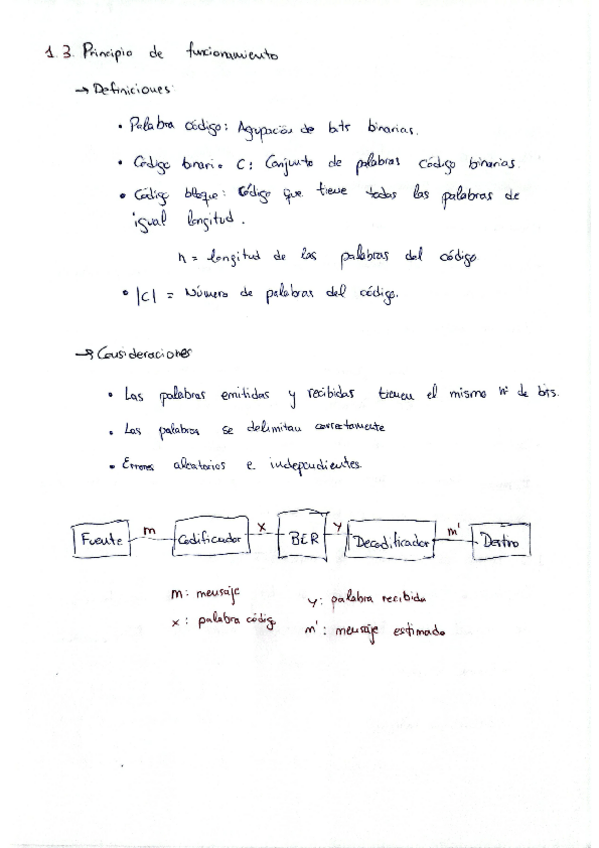 1.3. Principio de funcionamiento
→ Definiciones:
• Palabra código: Agrupación de bits binarias.
• Código binario C: Conjunto de palabras código binarias.
• Código bloque: Código que tiene todas las palabras de
igual longitud.
n = longitud de las palabras del código
• |C| = Número de palabras del código.
→ Consideraciones
• Las palabras emitidas y recibidas tienen el mismo nº de bits.
• Las palabras se delimitan correctamente
• Errores aleatorios e independientes.
Fuente m Codificador x BER y Decodificador m' Destino
m: mensaje y: palabra recibida
x: palabra código m': mensaje estimado